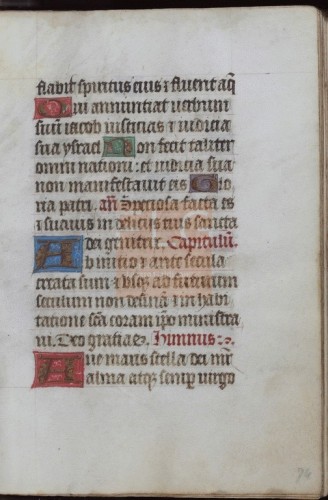 flabit spiritus eius ⁊ fluent aq̄
Qui annuntiat uerbum
suū iacob iusticias ⁊ iudicia
sua ysrael Non fecit taliter
omni nationi: et iudicia sua
non manifestauit eis Glo
ria patri. añ Speciosa facta es
et suauis in deliciis tuis sancta
dei genitrix. Capitulū.
Ab initio et ante secula
creata sum et vsq̨ ad futurum
seculum non desinā ⁊ in habi
tatione sc̄a coram ip̄o ministra
ui. Deo gratias. Himnus
Aue maris stella dei mr̄
alma atq̨ semper virgo
74